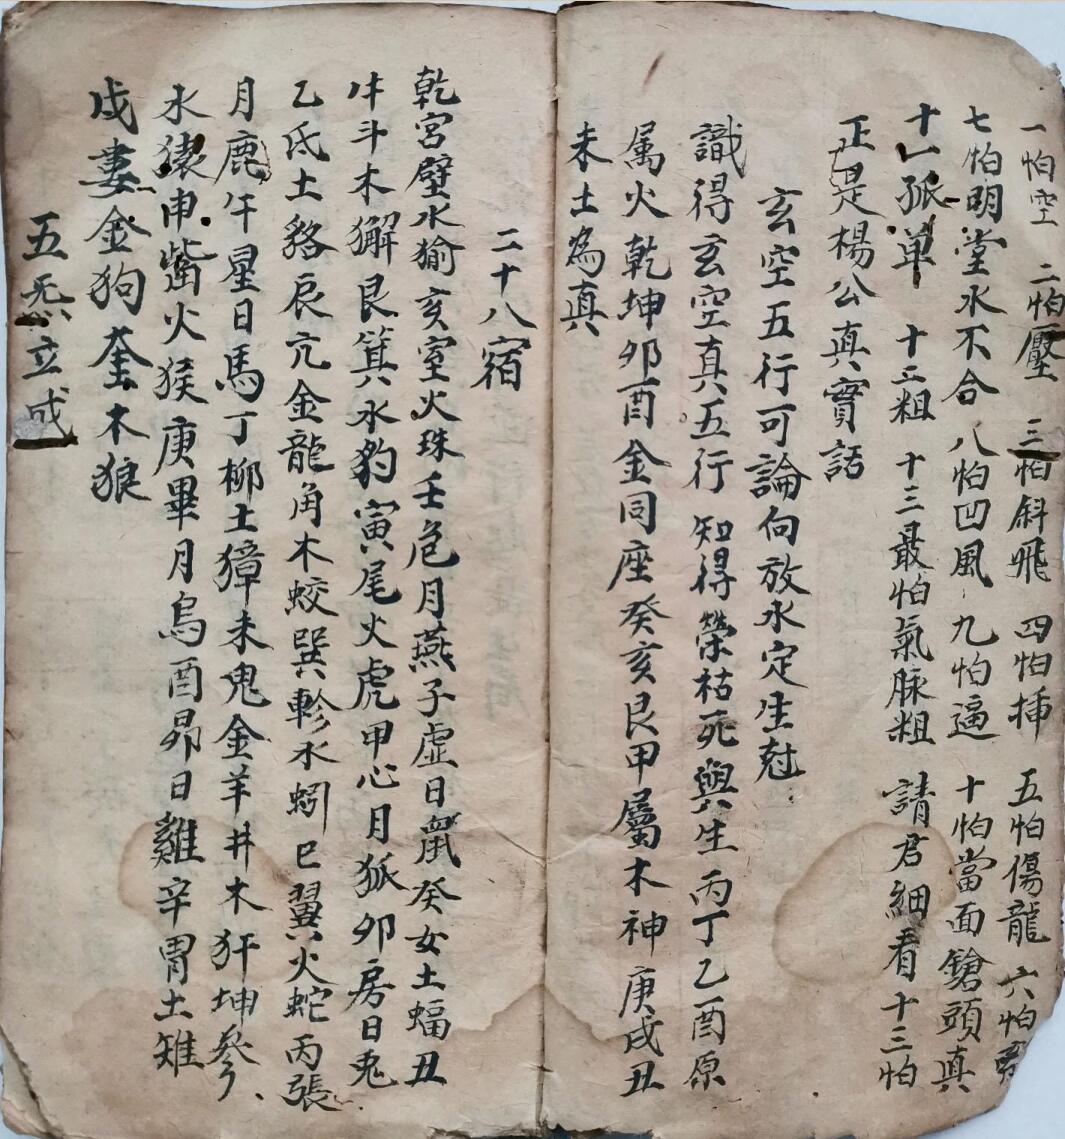 一怕空 二怕壓 三怕斜飛 四怕挿 五怕傷龍 六怕
七怕明堂水不合 八怕凹風 九怕逼 十怕當面鎗頭真
十一孤單 十二粗 十三最怕氣脉粗 請君細看十三怕
正是楊公真實話
玄空五行可論向放水定生尅
識得玄空真五行 知得榮枯死與生 丙丁乙酉原
属火乾坤卯酉金同座癸亥艮甲屬木神庚戌丑
未土為真
二十八宿
乾宮壁水㺄亥室火珠壬危月燕子虛日鼠癸女土蝠丑
牛斗木獬艮箕水豹寅尾火虎甲心月狐卯房日兎
乙氐土貉辰亢金龍角木蛟巽軫水蚓巳翼火蛇丙張
月鹿午星日馬丁柳土獐未鬼金羊井木犴坤參
水猿申觜火猴庚畢月烏酉昴日雞辛胃土雉
戌婁金狗奎木狼
五炁立成